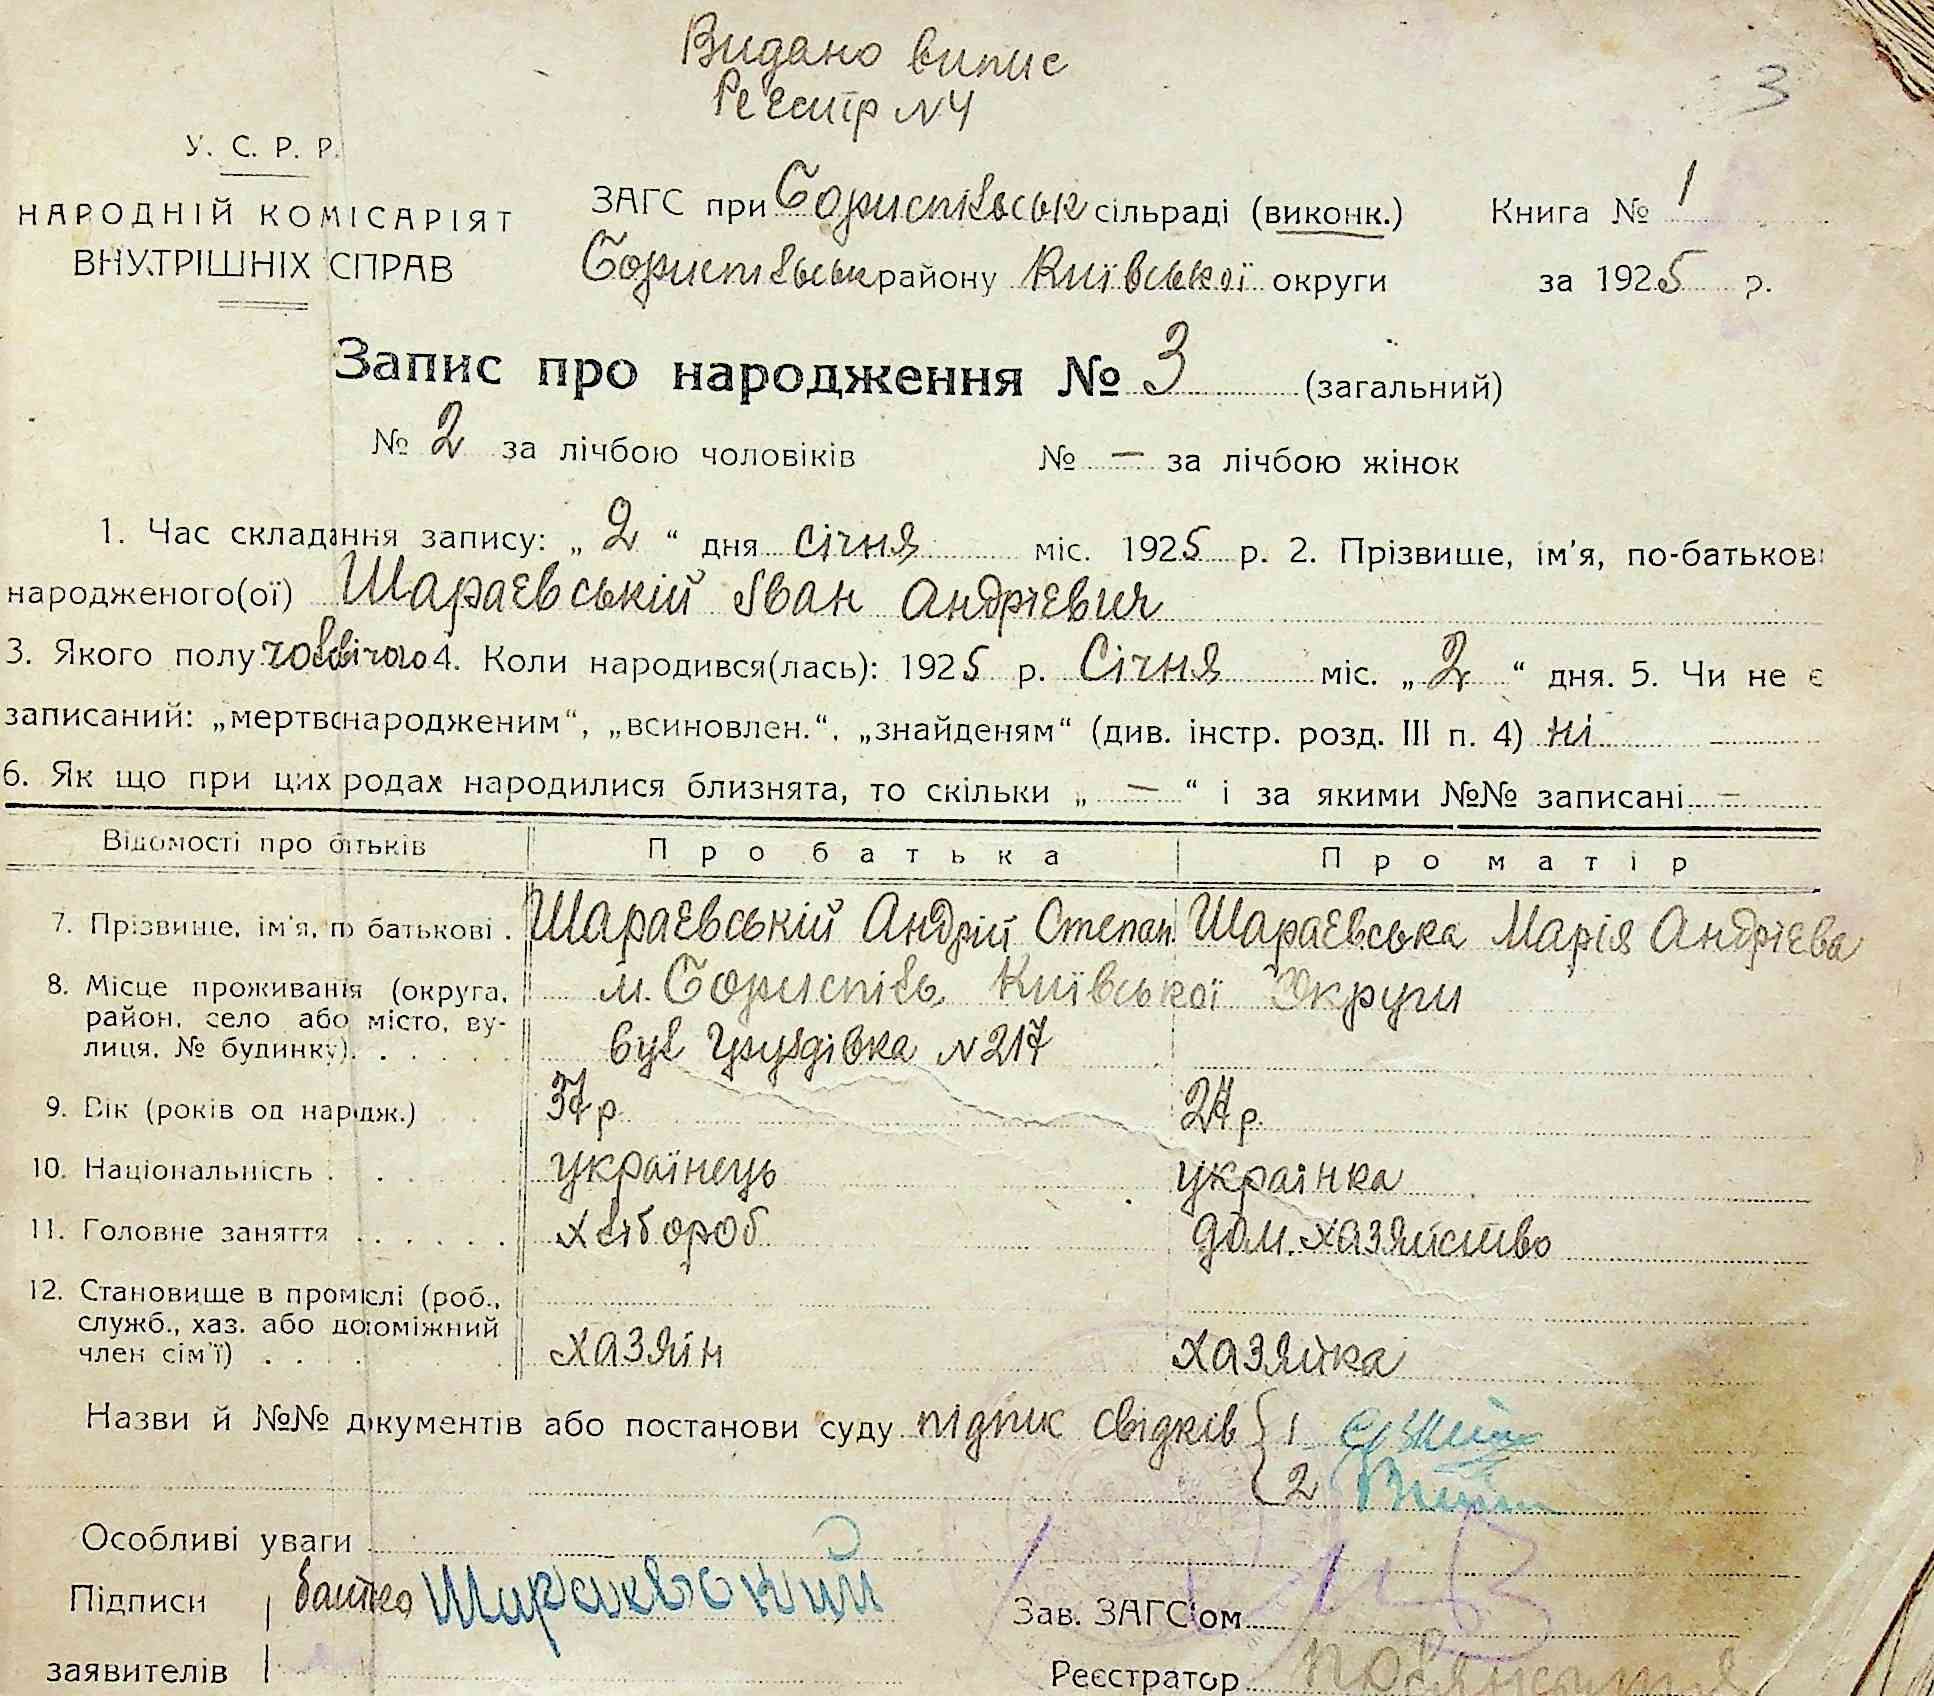 Видано випис
Реєстр N 4
3
У. С. Р. Р.
НАРОДНІЙ КОМІСАРІЯТ
ВНУТРІШНІХ СПРАВ
ЗАГС при Бориспільськ сільраді (виконк.)
Бориспільськ району Київської округи
Книга № 1
за 1925 р.
Запис про народження № 3 (загальний)
№ 2 за лічбою чоловіків № — за лічбою жінок
1. Час складання запису: „ 2 “ дня січня міс. 1925 р. 2. Прізвище, ім'я, по-батькові
народженого(ої) Шараєвській Іван Андрієвич
3. Якого полу чоловічого 4. Коли народився(лась): 1925 р. Січня міс. „ 2 “ дня. 5. Чи не є
записаний: „мертвонародженим“, „всиновлен.“, „знайденям“ (див. інстр. розд. III п. 4) ні —
6. Як що при цих родах народилися близнята, то скільки „ — “ і за якими №№ записані —
Відомості про батьків Про батька Про матір
7. Прізвище, ім'я, по батькові . Шараєвській Андрій Степан. Шараєвська Марія Андрієва
8. Місце проживання (округа, район, село або місто, ву-
лиця, № будинку). . . . . .
м. Бориспіль Київської Округи
вул Груздівка N 217
9. Вік (років од нарідж.) 37 р. 24 р.
10. Національність . . українець українка
11. Головне заняття . . . . . . хлібороб дом. хазяйство
12. Становище в промислі (роб.,
служб., хаз. або допоміжний
член сім'ї) . . . . хазяїн хазяйка
Назви й №№ документів або постанови суду підпис свідків { 1
2
Особливі уваги
Підписи батько Шараевский Зав. ЗАГС'ом
заявителів Реєстратор